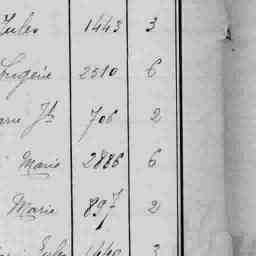 Jules 1443 3
Eugène 2510 6
Marie Jh 706 2
Marie 2886 6
Marie 897 2
Jules 1440 3